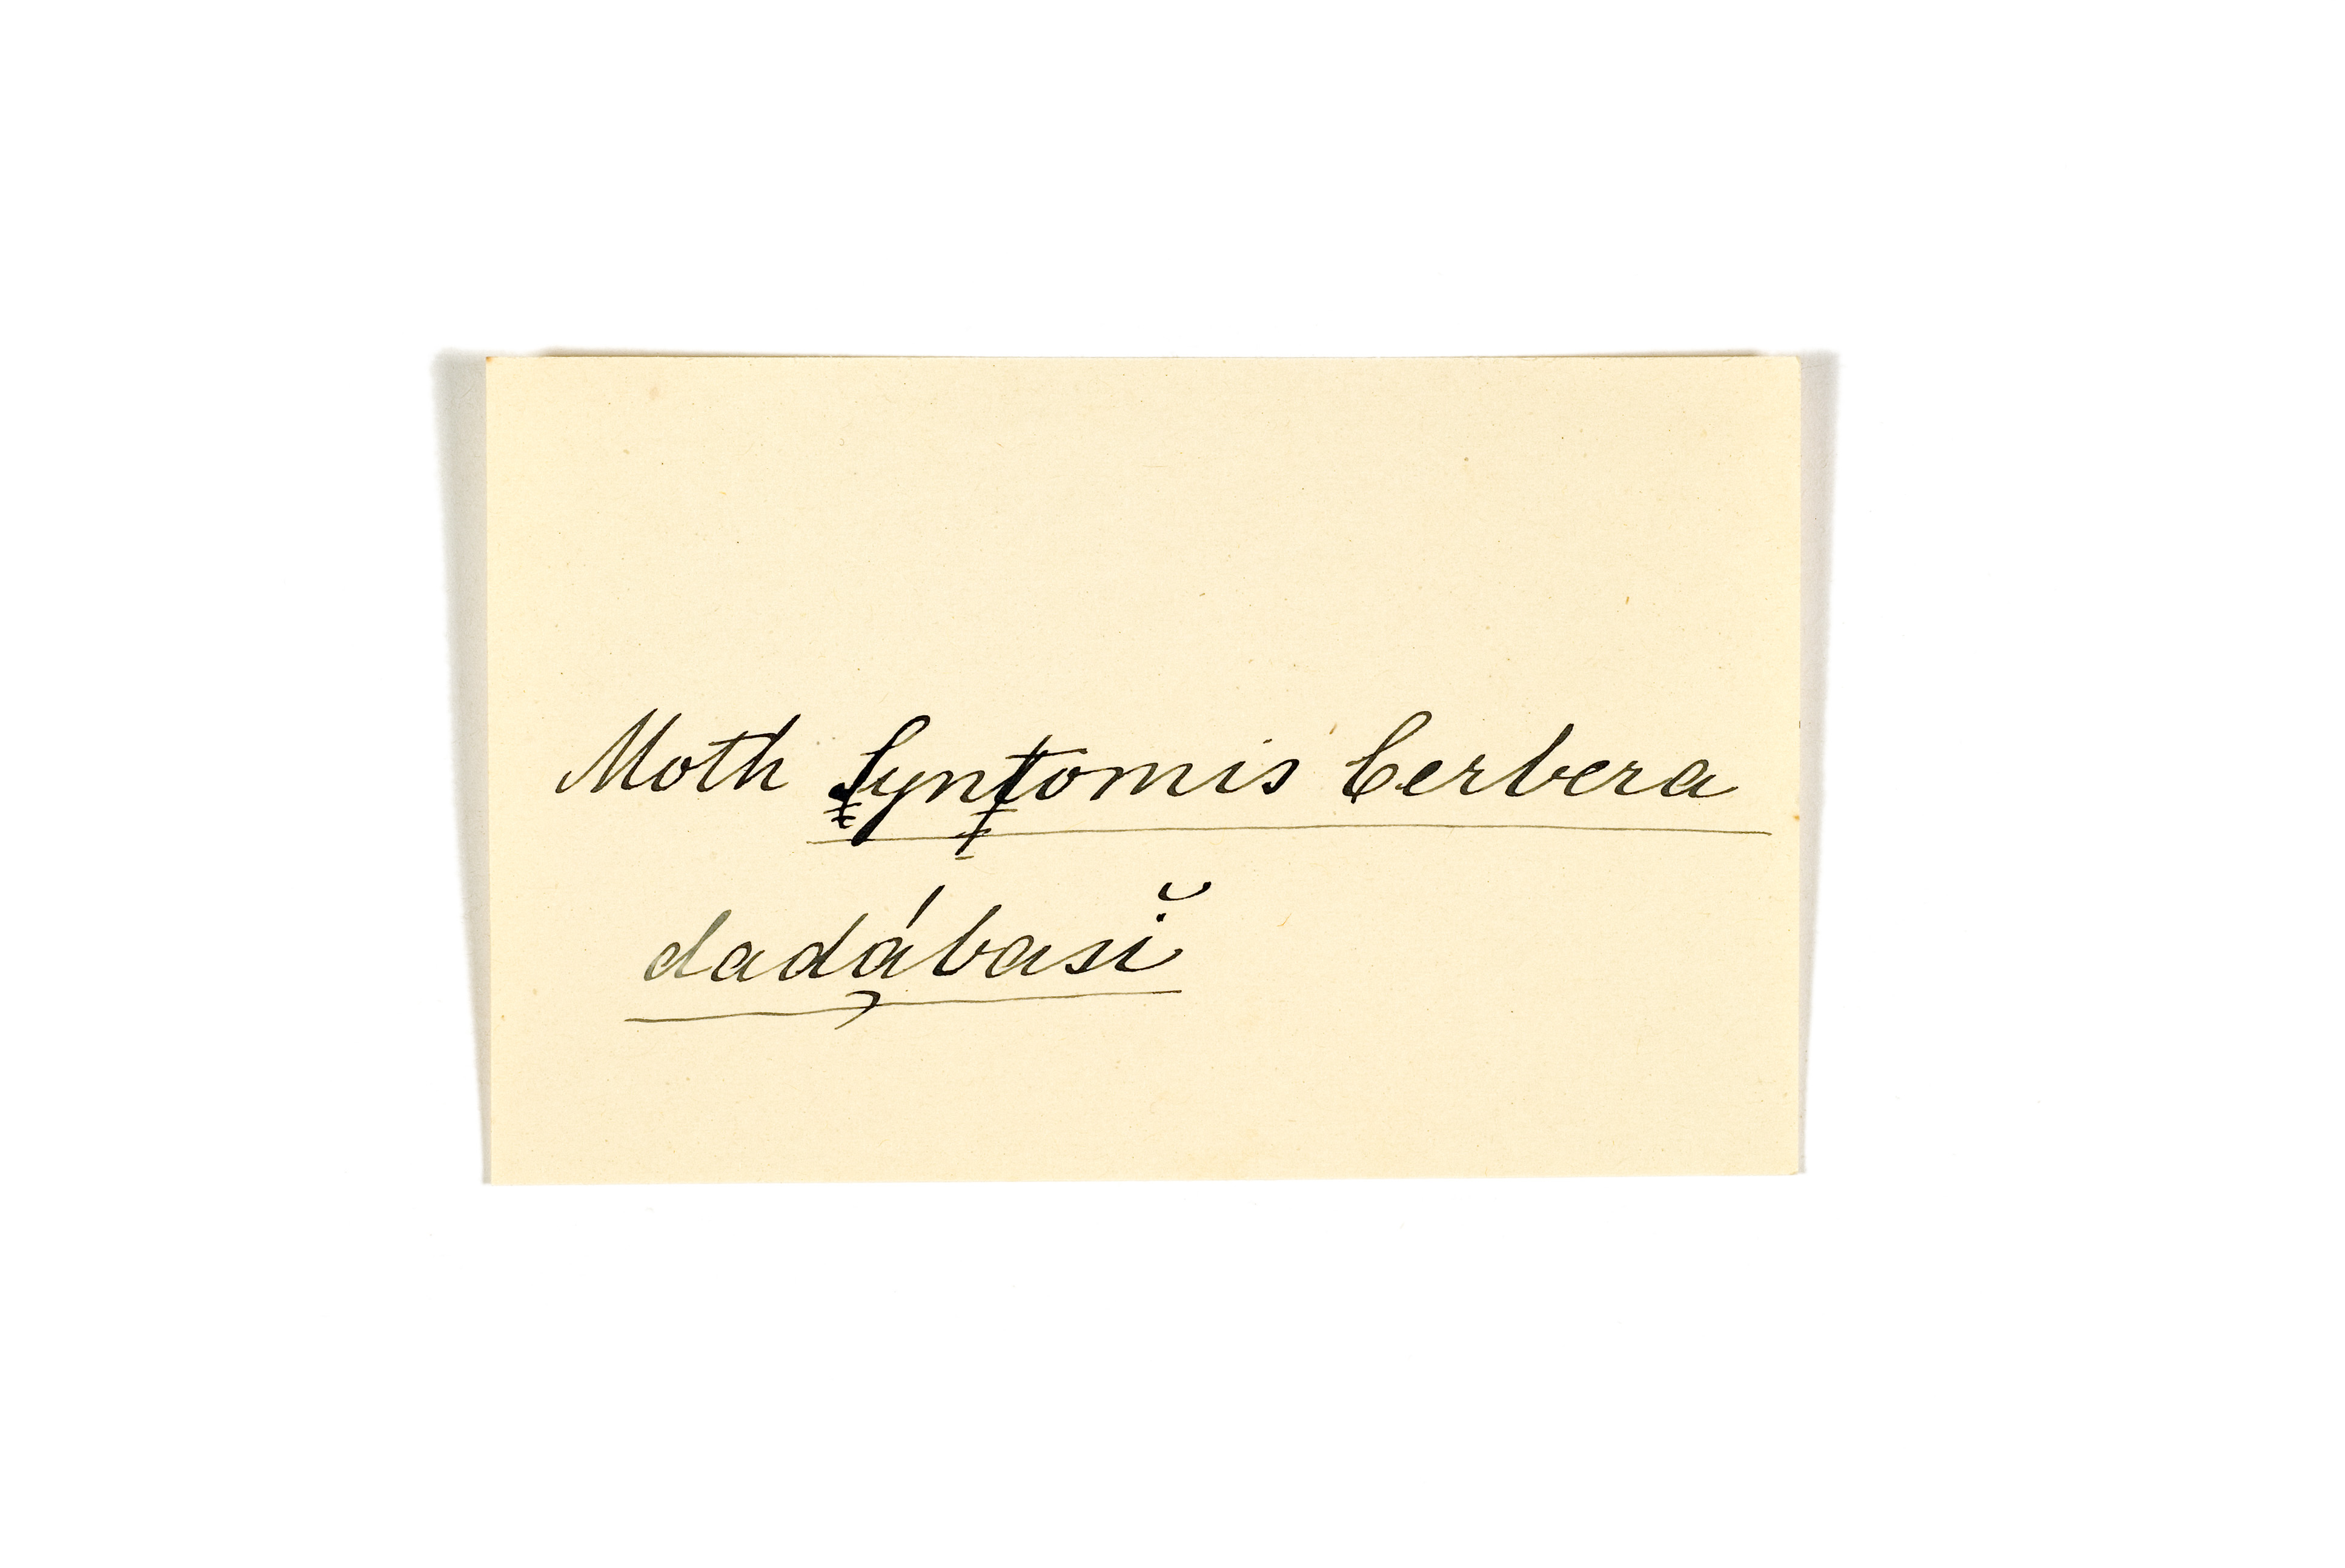 Moth Syntomis Cerbera
dadábasĭ